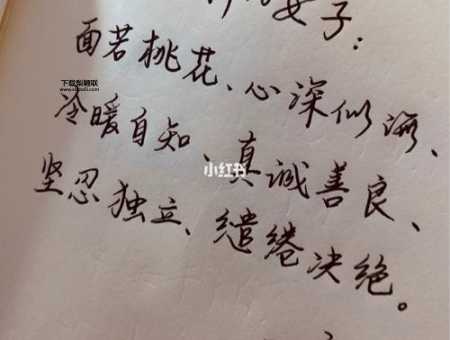 女子：
面若桃花、心深似海、
冷暖自知、真诚善良、
坚忍独立、缱绻决绝。
小红书